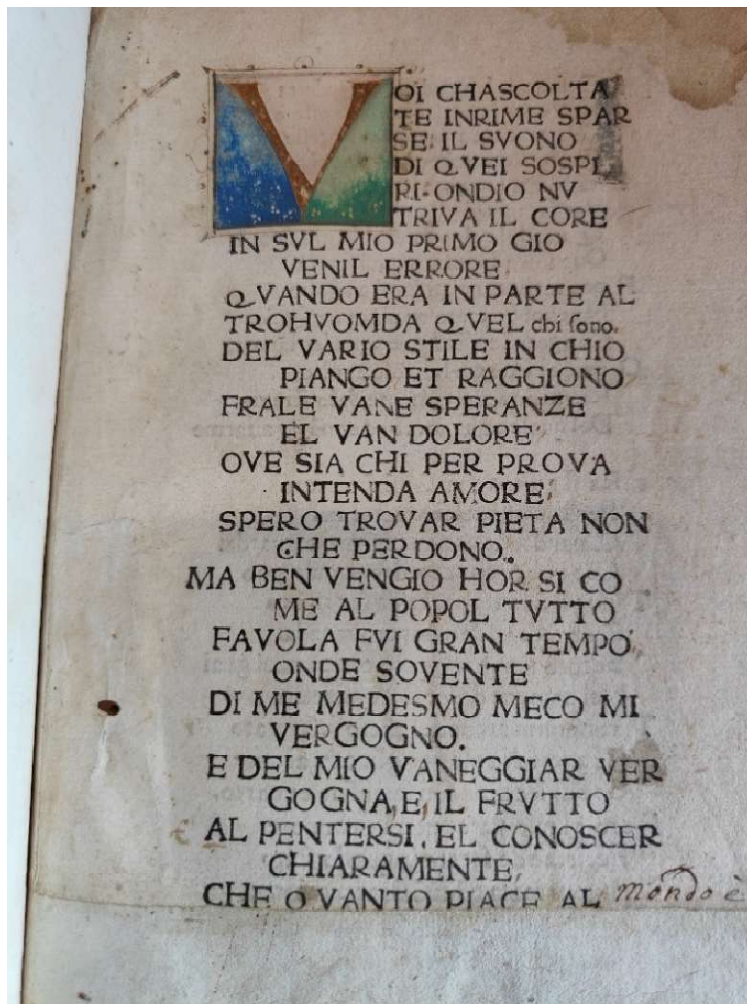 VOI CHASCOLTA
TE INRIME SPAR
SE: IL SVONO
DI QVEI SOSPI
RI. ONDIO NV
TRIVA IL CORE
IN SVL MIO PRIMO GIO
VENIL ERRORE
QVANDO ERA IN PARTE AL
TROHVOMDA QVEL chi sono.
DEL VARIO STILE IN CHIO
PIANGO ET RAGGIONO
FRALE VANE SPERANZE
EL VAN DOLORE
OVE SIA CHI PER PROVA
INTENDA AMORE:
SPERO TROVAR PIETA NON
CHE PERDONO.
MA BEN VENGIO HOR SI CO
ME AL POPOL TVTTO
FAVOLA FVI GRAN TEMPO,
ONDE SOVENTE
DI ME MEDESMO MECO MI
VERGOGNO.
E DEL MIO VANEGGIAR VER
GOGNA, E, IL FRVTTO
AL PENTERSI, EL CONOSCER
CHIARAMENTE,
CHE QVANTO PIACE AL mondo è